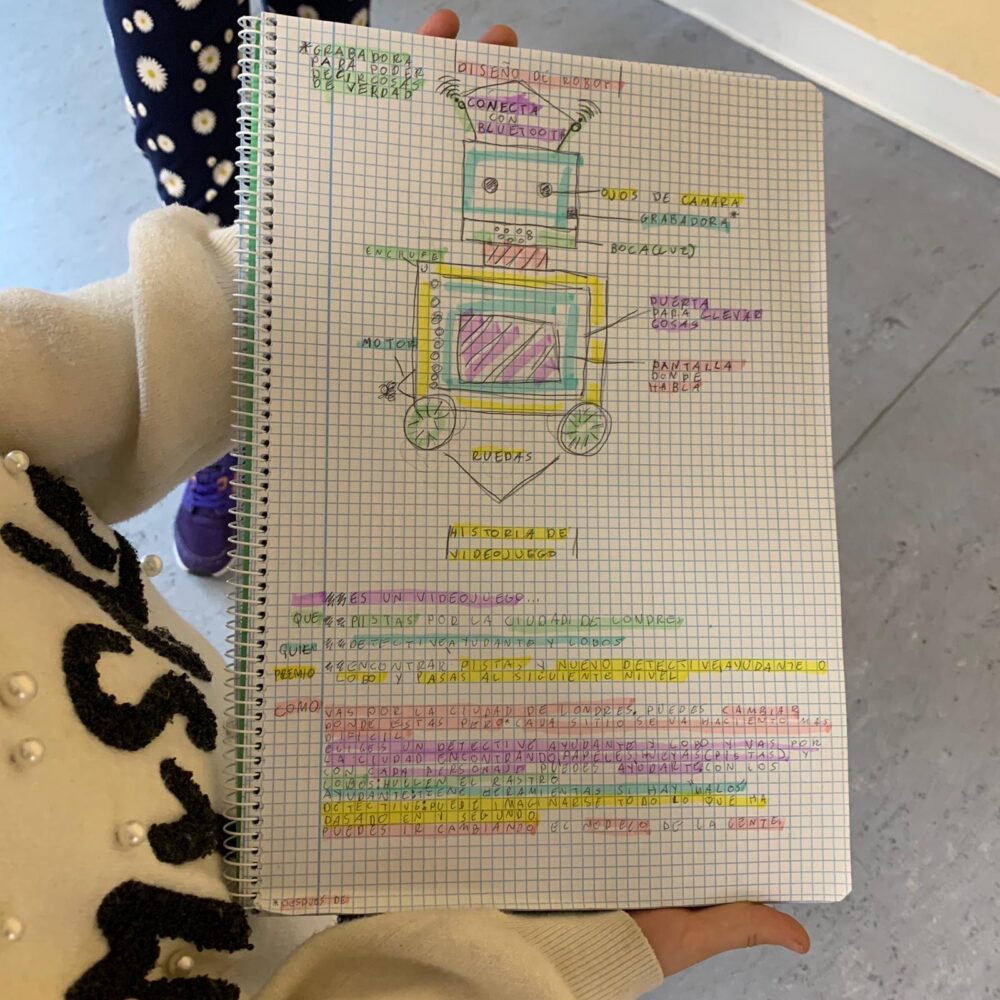 *GRABADORA
PARA PODER
DECIR COSAS
DE VERDAD
DISEÑO DE ROBOT
CONECTA
CON
BLUETOOTH
OJOS DE CAMARA
GRABADORA*
BOCA (LUZ)
ENCHUFE
PUERTA
PARA LLEVAR
COSAS
MOTOR
PANTALLA
DONDE
HABLA
RUEDAS
HISTORIA DE
VIDEOJUEGO
ES UN VIDEOJUEGO...
QUE PISTAS POR LA CIUDAD DE LONDRES
QUIEN DETECTIVE, AYUDANTE Y LOBOS
PREMIO ENCONTRAR PISTAS Y NUEVO DETECTIVE, AYUDANTE O
LOBO Y PASAS AL SIGUIENTE NIVEL
COMO VAS POR LA CIUDAD DE LONDRES, PUEDES CAMBIAR
DONDE ESTAS PERO* CADA SITIO SE VA HACIENTO MAS
DIFICIL
ELIGES UN DETECTIVE AYUDANTE Y LOBO Y VAS POR
LA CIUDAD ENCONTRANDO PAPELES, HUEYAS (PISTAS), Y
CON CADA PERSONAJE PUEDES AYUDARTE CON LOS
LOBOS: HUELEN EL RASTRO
AYUDANTE: TIENE HERAMIENTAS SI HAY MALOS
DETECTIVE: PUEDE IMAGINARSE TODO LO QUE HA
PASADO EN 1 SEGUNDO
PUEDES IR CAMBIANDO EL MODELO DE LA GENTE
*DESPUES DE